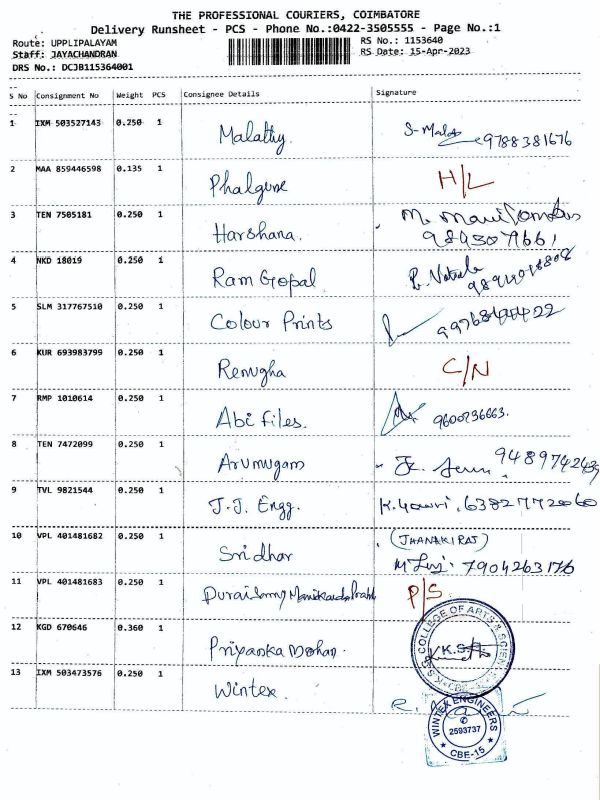 THE PROFESSIONAL COURIERS, COIMBATORE
Delivery Runsheet - PCS - Phone No.:0422-3505555 - Page No.:1
Route: UPPLIPALAYAM
RS No.: 1153640
Staff: JAYACHANDRAN
RS Date: 15-Apr-2023
DRS No.: DCJB115364001
S No Consignment No Weight PCS Consignee Details Signature
1 IXM 503527143 0.250 1 Malathy S-Mala 9788381676
2 MAA 859446598 0.135 1 Phalgune H/L
3 TEN 7505181 0.250 1 Harshana. M.
4 NKD 18019 0.250 1 Ram Gopal
5 SLM 317767510 0.250 1 Colour Prints
6 KUR 693983799 0.250 1 Renugha C/N
7 RMP 1010614 0.250 1 Abi files. 9600236663.
8 TEN 7472099 0.250 1 Arumugam 9489742439
9 TVL 9821544 0.250 1 J.J. Engg. 6382772060
10 VPL 401481682 0.250 1 Sridhar (JHANAKIRAJ)
7904263176
11 VPL 401481683 0.250 1 P/S
12 KGD 670646 0.360 1 Priyanka Mohan. COLLEGE OF ARTS & SCIENCE
13 IXM 503473576 0.250 1 Wintex. R.
WINTEX ENGINEERS
2593737
CBE-15